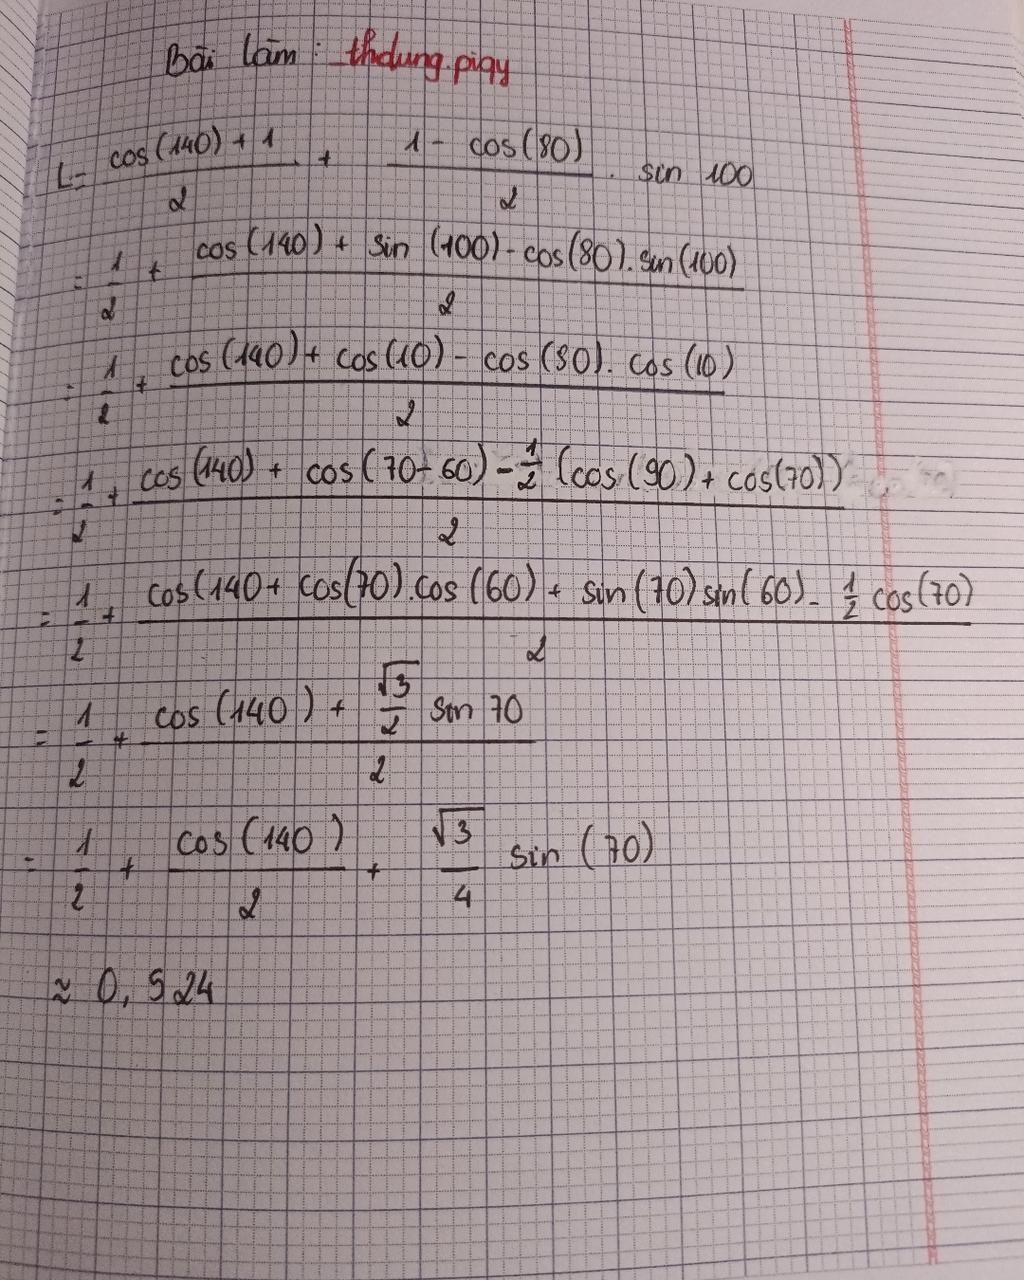 Bài làm : thdung.piqy
L= cos(140) + 1 / 2 + 1 - cos(80) / 2 . sin 100
= 1/2 + cos(140) + sin (100) - cos(80). sin(100) / 2
= 1/2 + cos(140) + cos(10) - cos(80). cos(10) / 2
= 1/2 + cos(140) + cos(70-60) - 1/2 (cos(90) + cos(70)) / 2
= 1/2 + cos(140 + cos(70).cos(60) + sin(70)sin(60) - 1/2 cos(70) / 2
= 1/2 + cos(140) + √3/2 sin 70 / 2
= 1/2 + cos(140) / 2 + √3/4 sin (70)
≈ 0,524